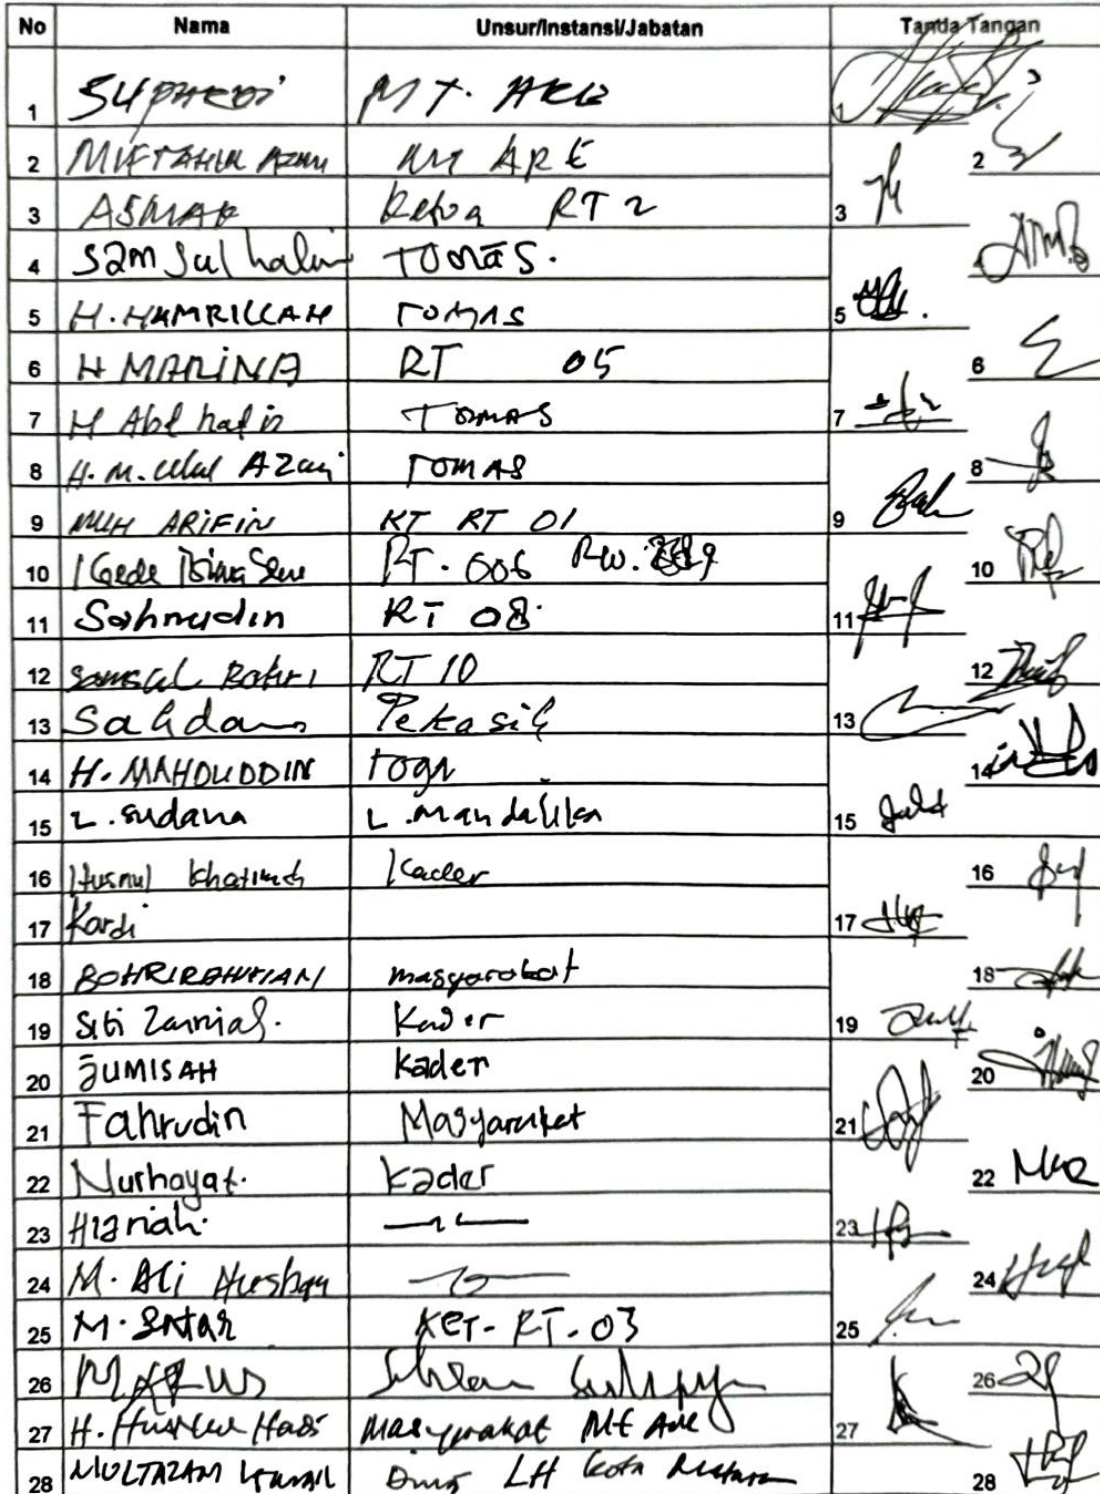 No Nama Unsur/Instansi/Jabatan Tanda Tangan
1 SUPARDI MT. ARE 1
2 MIFTAHUL AZMI MT ARE 2
3 ASMAR Ketua RT 2 3
4 Samsul halim TOMAS.
5 H. HAMRILLAH TOMAS 5
6 H MARINA RT 05 6
7 H Abd hafiz TOMAS 7
8 H. M. Ulul Azmi TOMAS 8
9 MUH ARIFIN KT RT 01 9
10 I Gede RT. 006 RW. 10
11 Sahnudin RT 08. 11
12 Samsul Bahri RT 10 12
13 Sahdan Pekasih 13
14 H. MAHDUDDIN toga 14
15 L. sudana L. Mandalika 15
16 Husnul khatimah Kader 16
17 Kardi 17
18 masyarakat 18
19 Siti Kader 19
20 JUMISAH Kader 20
21 Fahrudin Masyarakat 21
22 Nurhayat. Kader 22
23 23
24 M. Ali 24
25 M. SATAR KET- RT. 03 25
26 26
27 H. Masyarakat MT Are 27
28 MULTAZAM LH Kota Mataram 28